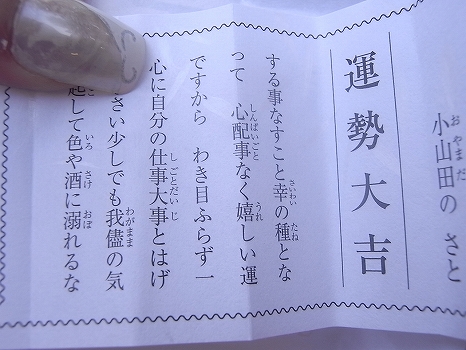 小山田のさと
運勢大吉
する事なすこと幸の種とな
って 心配事なく嬉しい運
ですから わき目ふらず一
心に自分の仕事大事とはげ
さい少しでも我儘の気
起して色や酒に溺れるな